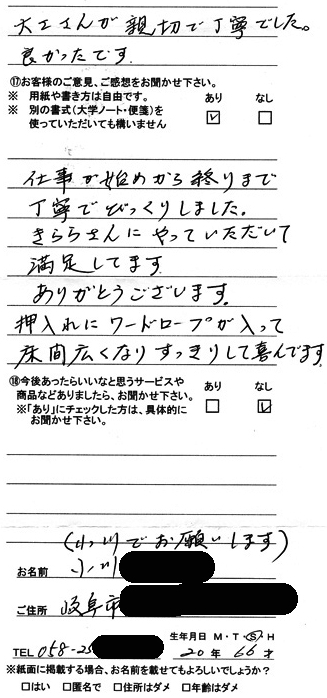 大工さんが親切で丁寧でした。
良かったです
⑰お客様のご意見、ご感想をお聞かせ下さい。
※ 用紙や書き方は自由です。 あり なし
※ 別の書式(大学ノート・便箋)を
使っていただいても構いません
仕事が始めから終りまで
丁寧でびっくりしました。
きららさんにやっていただいて
満足してます
ありがとうございます。
押入れにワードロープが入って
床間広くなりすっきりして喜んでます
⑱今後あったらいいなと思うサービスや あり なし
商品などありましたら、お聞かせ下さい。
※「あり」にチェックした方は、具体的に
お聞かせ下さい。
(小川でお願いします)
お名前 小川
ご住所 岐阜市
生年月日 M・T・S・H
TEL 058-25 20年 66才
※紙面に掲載する場合、お名前を載せてもよろしいでしょうか?
□はい □匿名で □住所はダメ □年齢はダメ